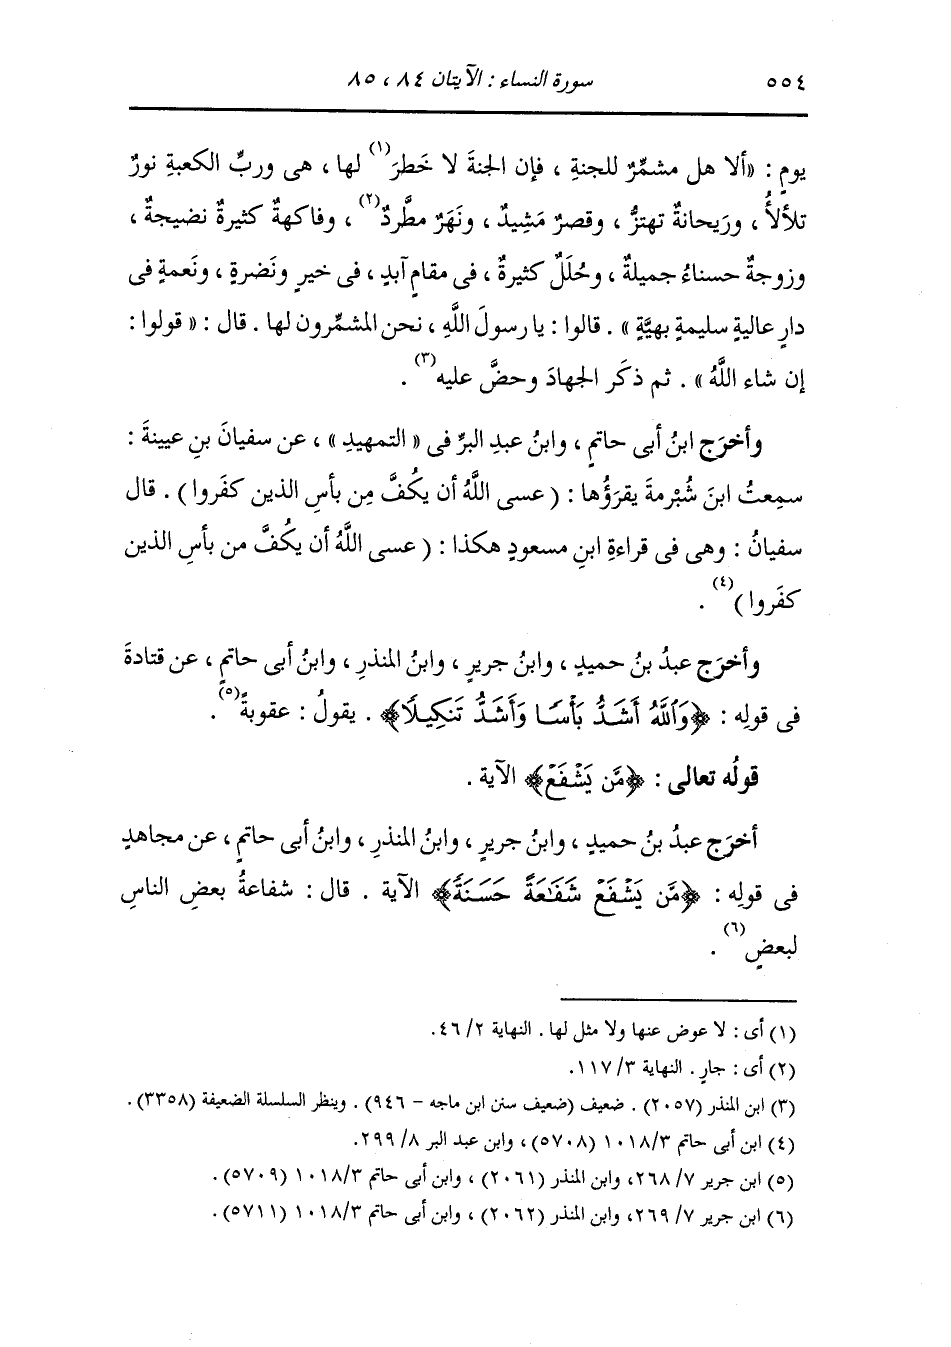 ٥٥٤ سورة النساء : الآيتان ٨٤ ، ٨٥
يومٍ : «ألا هل مشمِّرٌ للجنةِ ، فإن الجنةَ لا خَطَرَ(١) لها ، هى وربِّ الكعبةِ نورٌ
تلألأُ ، ورَيحانةٌ تهتزُّ ، وقصرٌ مَشِيدٌ ، ونَهَرٌ مطَّردٌ(٢) ، وفاكهةٌ كثيرةٌ نضيجةٌ ،
وزوجةٌ حسناءُ جميلةٌ ، وحُلَلٌ كثيرةٌ ، فى مقامٍ آبدٍ ، فى خيرٍ ونَضرةٍ ، ونَعمةٍ فى
دارٍ عاليةٍ سليمةٍ بهيَّةٍ» . قالوا : يا رسولَ اللَّهِ ، نحن المشمِّرون لها . قال : « قولوا :
إن شاء اللَّهُ» . ثم ذكَر الجهادَ وحضَّ عليه(٣) .
وأخرَج ابنُ أبى حاتمٍ ، وابنُ عبدِ البرِّ فى « التمهيدِ » ، عن سفيانَ بنِ عيينةَ :
سمِعتُ ابنَ شُبْرمةَ يقرَؤُها : ( عسى اللَّهُ أن يكُفَّ مِن بأسِ الذين كفَروا ) . قال
سفيانُ : وهى فى قراءةِ ابنِ مسعودٍ هكذا : ( عسى اللَّهُ أن يكُفَّ من بأسِ الذين
كفَروا )(٤) .
وأخرَج عبدُ بنُ حميدٍ ، وابنُ جريرٍ ، وابنُ المنذرِ ، وابنُ أبى حاتمٍ ، عن قتادةَ
فى قولِه : ﴿وَٱللَّهُ أَشَدُّ بَأْسًا وَأَشَدُّ تَنكِيلًا﴾ . يقولُ : عقوبةً(٥) .
قولُه تعالى : ﴿مَّن يَشْفَعْ﴾ الآية .
أخرَج عبدُ بنُ حميدٍ ، وابنُ جريرٍ ، وابنُ المنذرِ ، وابنُ أبى حاتمٍ ، عن مجاهدٍ
فى قولِه : ﴿مَّن يَشْفَعْ شَفَٰعَةً حَسَنَةً﴾ الآية . قال : شفاعةُ بعضِ الناسِ
لبعضٍ(٦) .
(١) أى : لا عوض عنها ولا مثل لها . النهاية ٢/ ٤٦.
(٢) أى : جارٍ . النهاية ٣/ ١١٧.
(٣) ابن المنذر (٢٠٥٧) . ضعيف (ضعيف سنن ابن ماجه – ٩٤٦) . وينظر السلسلة الضعيفة (٣٣٥٨) .
(٤) ابن أبى حاتم ٣/ ١٠١٨ (٥٧٠٨) ، وابن عبد البر ٨/ ٢٩٩.
(٥) ابن جرير ٧/ ٢٦٨، وابن المنذر (٢٠٦١) ، وابن أبى حاتم ٣/ ١٠١٨ (٥٧٠٩) .
(٦) ابن جرير ٧/ ٢٦٩، وابن المنذر (٢٠٦٢) ، وابن أبى حاتم ٣/ ١٠١٨ (٥٧١١) .